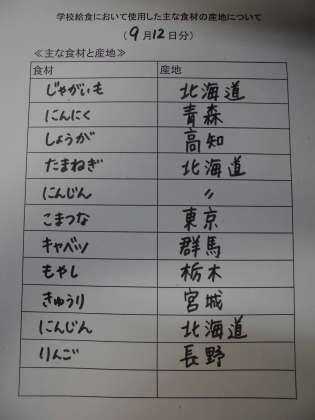 学校給食において使用した主な食材の産地について
(9月12日分)
≪主な食材と産地≫
食材 産地
じゃがいも 北海道
にんにく 青森
しょうが 高知
たまねぎ 北海道
にんじん 〃
こまつな 東京
キャベツ 群馬
もやし 栃木
きゅうり 宮城
にんじん 北海道
りんご 長野